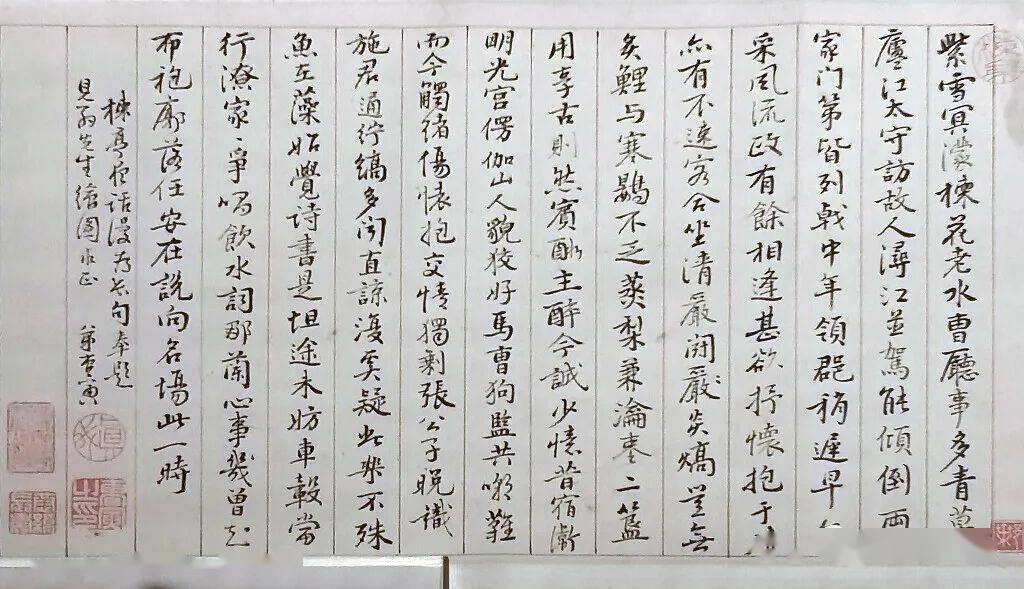 紫雪冥濛楝花老水曹廳事多青草
廬江太守訪故人潯江並駕能傾倒兩
家门第皆列戟中年領郡稍遲早
采風流政有餘相逢甚欲抒懷抱于
亦有不速客合坐清嚴闘嚴炎熇豈無
炙鯉与寒鷃不乏蒸梨兼瀹枣二簋
用享古則然賓酬主醉今誠少憶昔宿衛
明光宮愣伽山人貌狡好馬曹狗監共嘲難
而今觸緒傷懷抱交情獨剩張公子晚識
施君通紵縞多聞直諒復奚疑此樂不殊
魚在藻始覺诗書是坦途未妨車轂當
行潦家〻爭唱飲水詞那蘭心事幾曾知
布袍廓落任安在說向名場此一時
楝亭夜話漫为長句奉題
見翁先生繪圖求正 弟曹寅